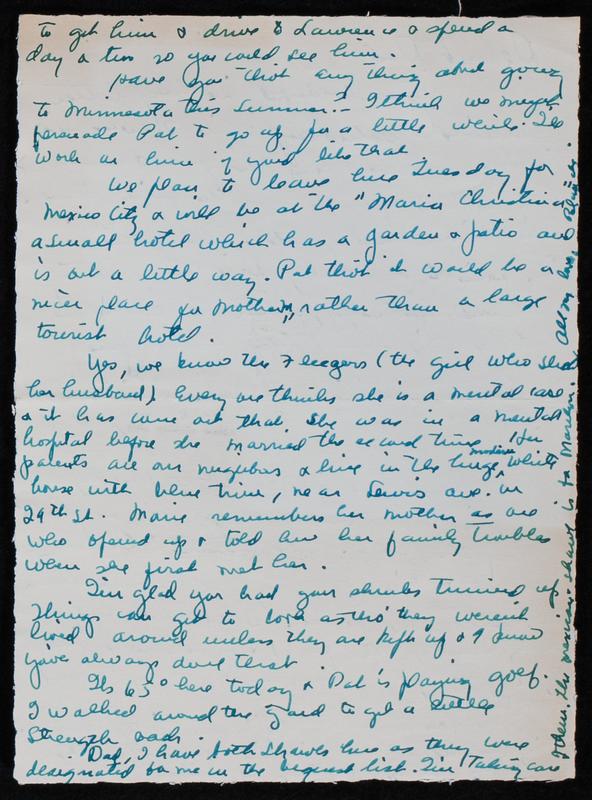 to get him & drive to Lawrence & spend a
day or two so you could see him.
Have you thot anything about going
to Minnesota this summer? I think we might
persuade Pat to go up for a little while. I'll
work on him if you'd like that.
We plan to leave here Tuesday for
Mexico City & will be at the "Maria Christina
a small hotel which has a garden & patio and
is out a little way. Pat thot it would be a
nicer place for Mother, rather than a large
tourist hotel.
Yes, we know the Fleegers (the girl who shot
her husband) Every one thinks she is a mental case
& it has come out that she was in a mental
hospital before she married the second time. Her
parents are our neighbors & live in the huge, modern white
house with blue trim, near Lewis ave. on
29th St. Marie remembers her mother as one
who opened up & told her her family troubles
when she first met her.
I'm glad you had your shrubs trimmed up
Things can get to look as tho' they weren't
lived around unless they are kept up & I know
you've always done that.
Its 65° here today & Pat is playing golf.
I walked around the yard to get a little
strength back.
Dad, I have both shawls here as they were
designated for me in the bequest list. I'm taking care
of them. The mexican shawl is for Marilyn. All my love,